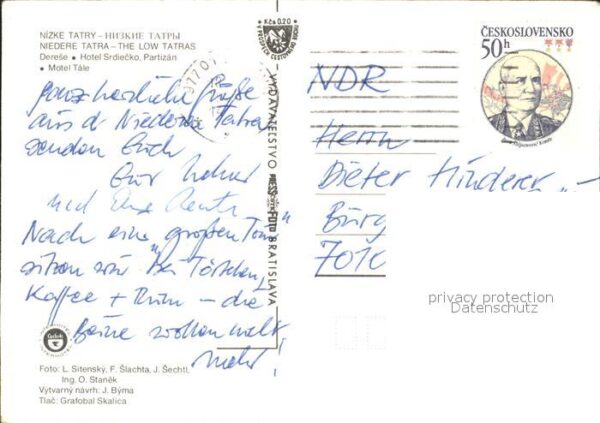 NÍZKE TATRY – НИЗКИЕ ТАТРЫ
NIEDERE TATRA – THE LOW TATRAS
Dereše • Hotel Srdiečko, Partizán
• Motel Tále
Grüße
aus d Niederen Tatra
senden Euch
Euer
und
Nach eine großen Tour
sitzen wir "Bei
Kaffee + Rum – die
Beine wollen nicht
mehr!
Foto: L. Sitenský, F. Šlachta, J. Šechtl,
Ing. O. Staněk
Výtvarný návrh: J. Býma
Tlač: Grafobal Skalica
Kčs 0,20
VYDAVATEĽSTVO PRESSFOTO BRATISLAVA
ČESKOSLOVENSKO
50 h
NDR
Herrn
Dieter Hinderer
Burg
privacy protection
Datenschutz